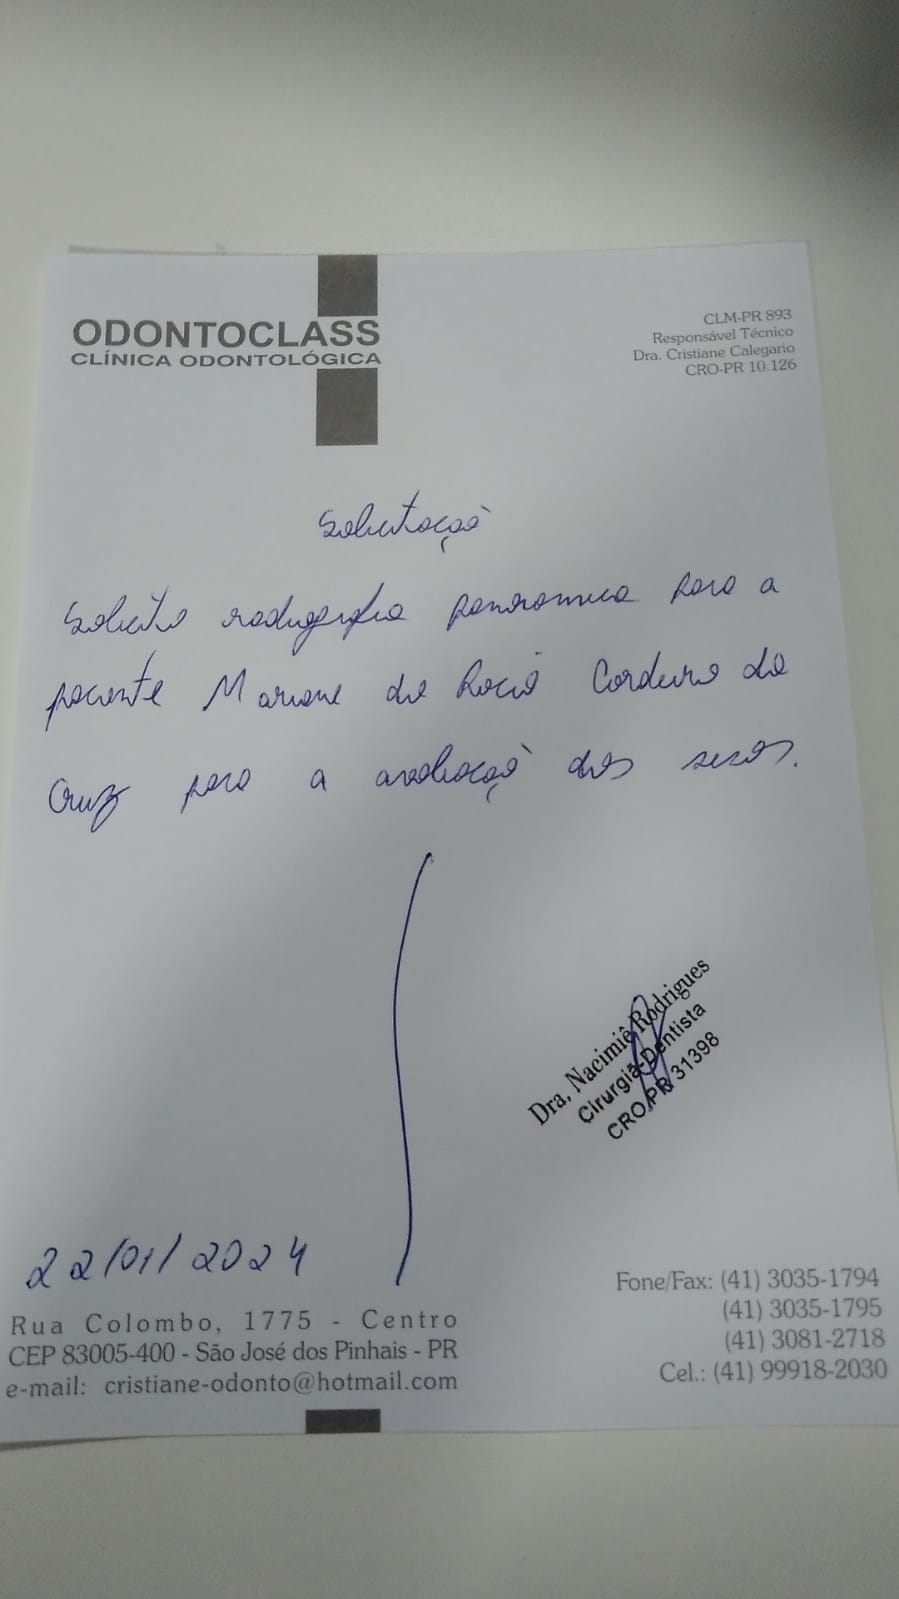 ODONTOCLASS
CLÍNICA ODONTOLÓGICA
CLM-PR 893
Responsável Técnico
Dra. Cristiane Calegario
CRO-PR 10.126
Solicitação
Solicito radiografia panoramica para a
paciente Mariane do Rocio Cordeiro da
Cruz para a avaliação dos sisos.
Dra. Nacimiê Rodrigues
Cirurgiã-Dentista
CRO/PR 31398
22/01/2024
Rua Colombo, 1775 - Centro
CEP 83005-400 - São José dos Pinhais - PR
e-mail: cristiane-odonto@hotmail.com
Fone/Fax: (41) 3035-1794
(41) 3035-1795
(41) 3081-2718
Cel.: (41) 99918-2030